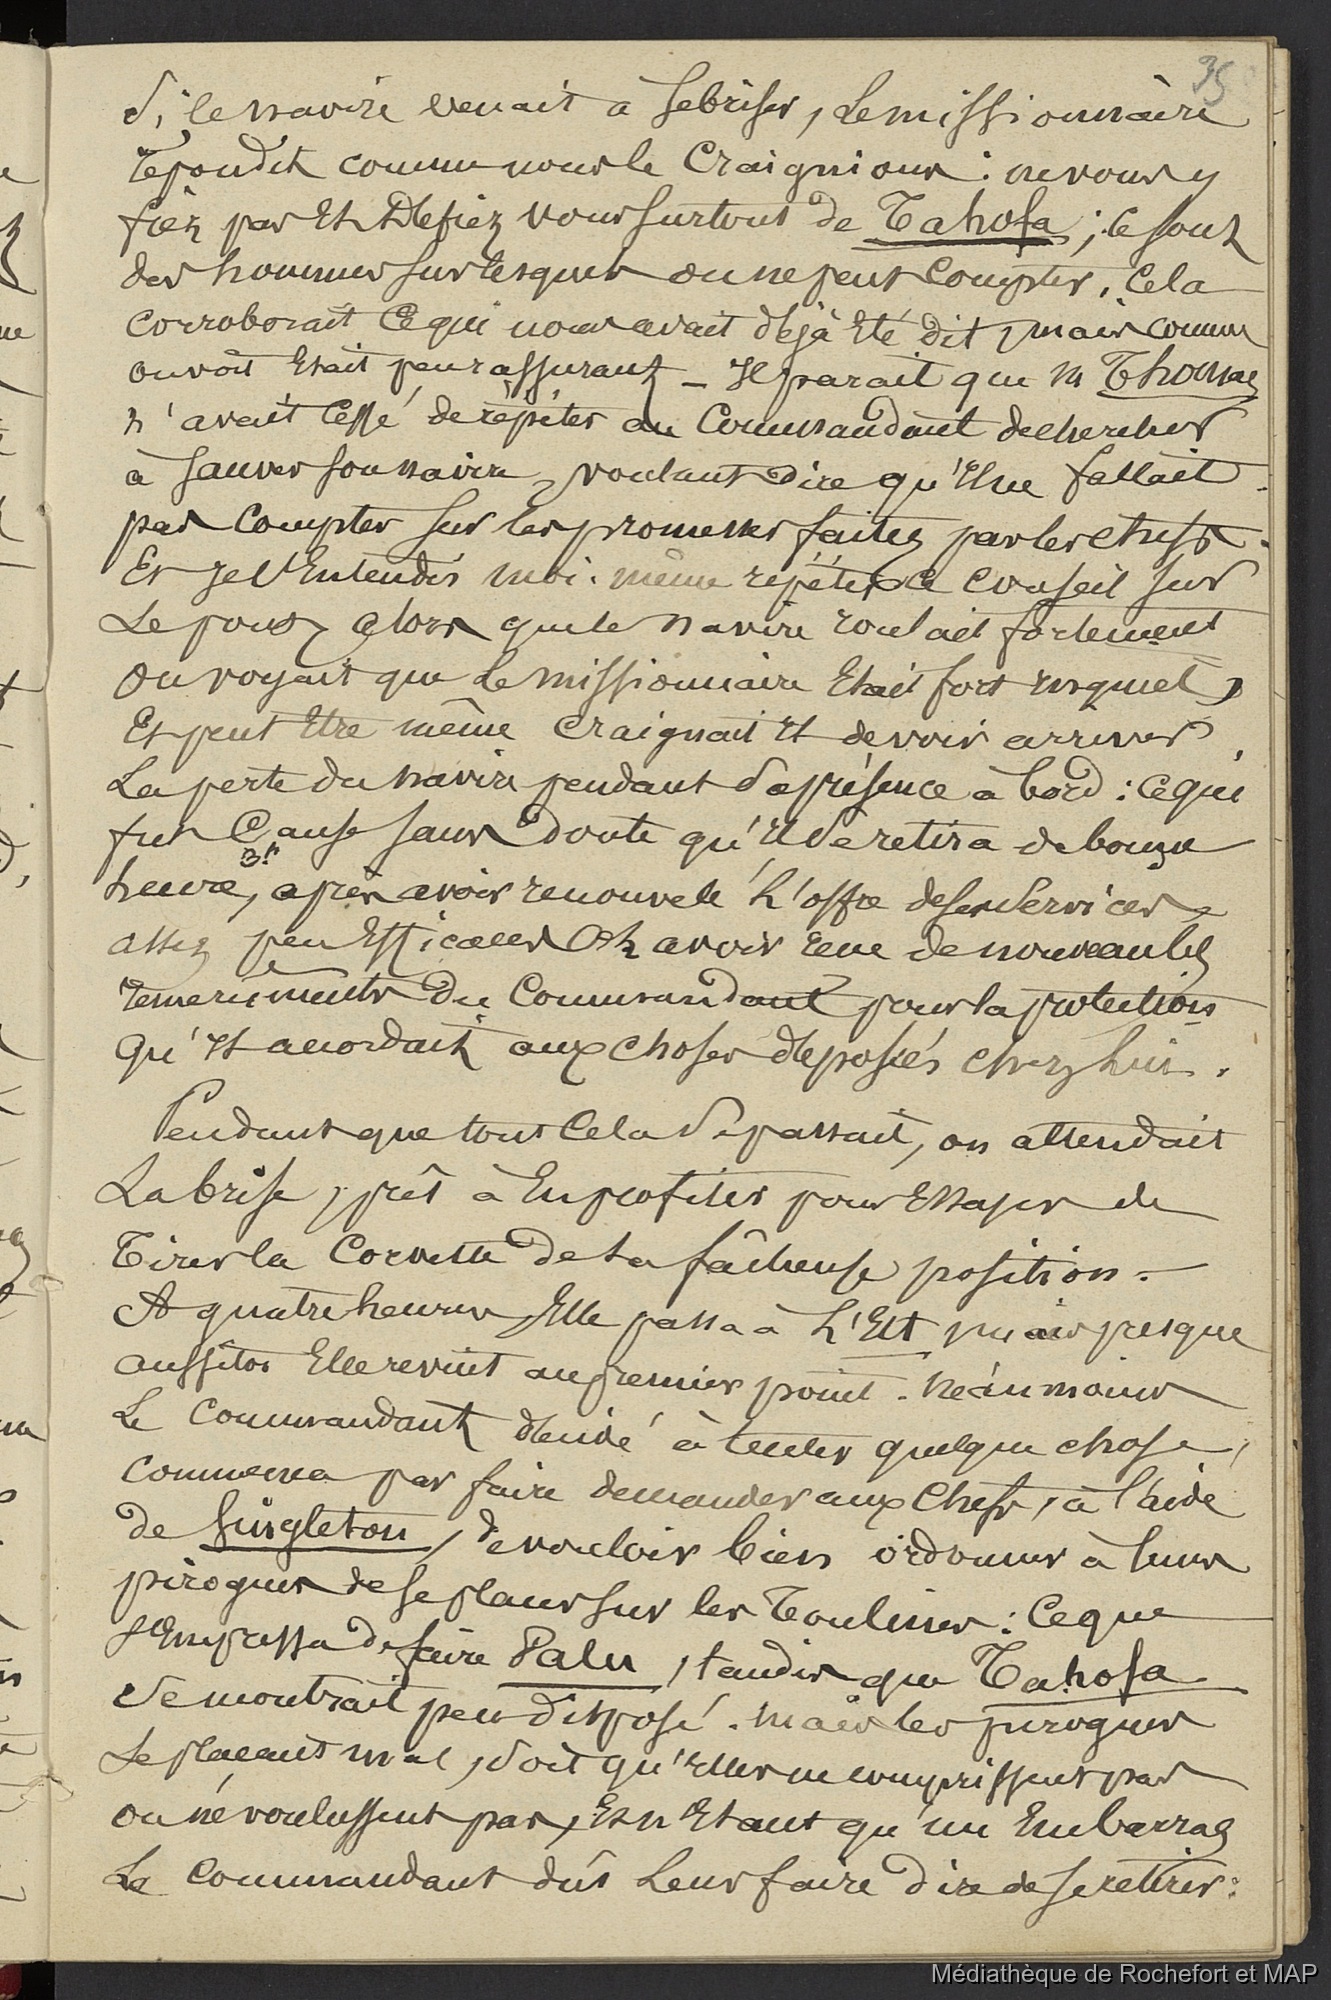 35
Si le navire venait à se briser, Le missionnaire
répondit comme nous le Craignions : ne vous y
fiez pas Et Défiez vous surtout de Tahofa ; ce sont
des hommes sur lesquels on ne peut Compter. Cela
corroborait Ce qui nous avait déjà Eté dit, mais comme
on voit Etait peu rassurant – Il parait que M Thomas
n'avait Cessé de répéter au Commandant de chercher
à sauver son navire, voulant dire qu'il ne fallait
pas Compter sur les promesses faites par les chefs.
Et je l'Entendis moi-même répéter ce conseil sur
Le pont, alors que le navire roulait fortement
On voyait que Le missionnaire Etait fort inquiet,
Et peut Etre même Craignait il de voir arriver
La perte du navire pendant Sa présence à bord : ce qui
fut Cause sans doute qu'il Se retira de bonne
3h
heure, après avoir renouvelé L'offre de ses Services
assez peu Efficaces Et avoir reçu de nouveau les
remerciments du Commandant pour la protection
qu'il accordait aux choses déposées chez Lui.
Pendant que tout Cela Se passait, on attendait
La brise, prêt à En profiter pour Essayer de
Tirer la Corvette de Sa fâcheuse position.
A quatre heures, Elle passa à L'Est mais presque
aussitot Elle revint au premier point. Néanmoins
Le Commandant décidé à tenter quelque chose,
commença par faire demander aux Chefs, à l'aide
de Singleton, de vouloir bien ordonner à leurs
pirogues de se placer sur les Toulines : Ce que
s'Empressa de faire Palu, tandis que Tahofa
Se montrait peu disposé. Mais les pirogues
Se plaçant mal, Soit qu'Elles ne comprissent pas
ou ne voulussent pas, Et n'Etant qu'un Embarras
Le Commandant dut Leur faire dire de se retirer :
Médiathèque de Rochefort et MAP